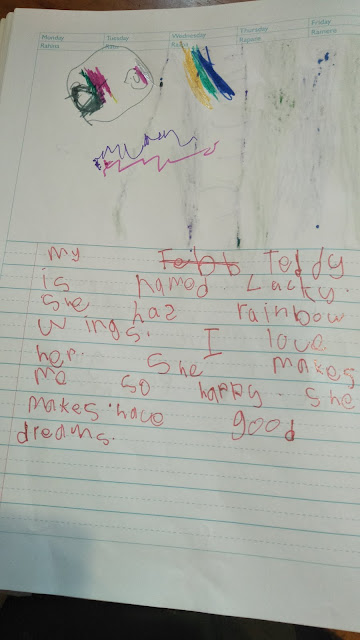 Monday Tuesday Wednesday Thursday Friday
Rahina Rapare Ramere
my Teddy
is named. Lacky.
She haz rainbow
wings. I love
her. She makes
me so happy. She
makes. have good
dreams.